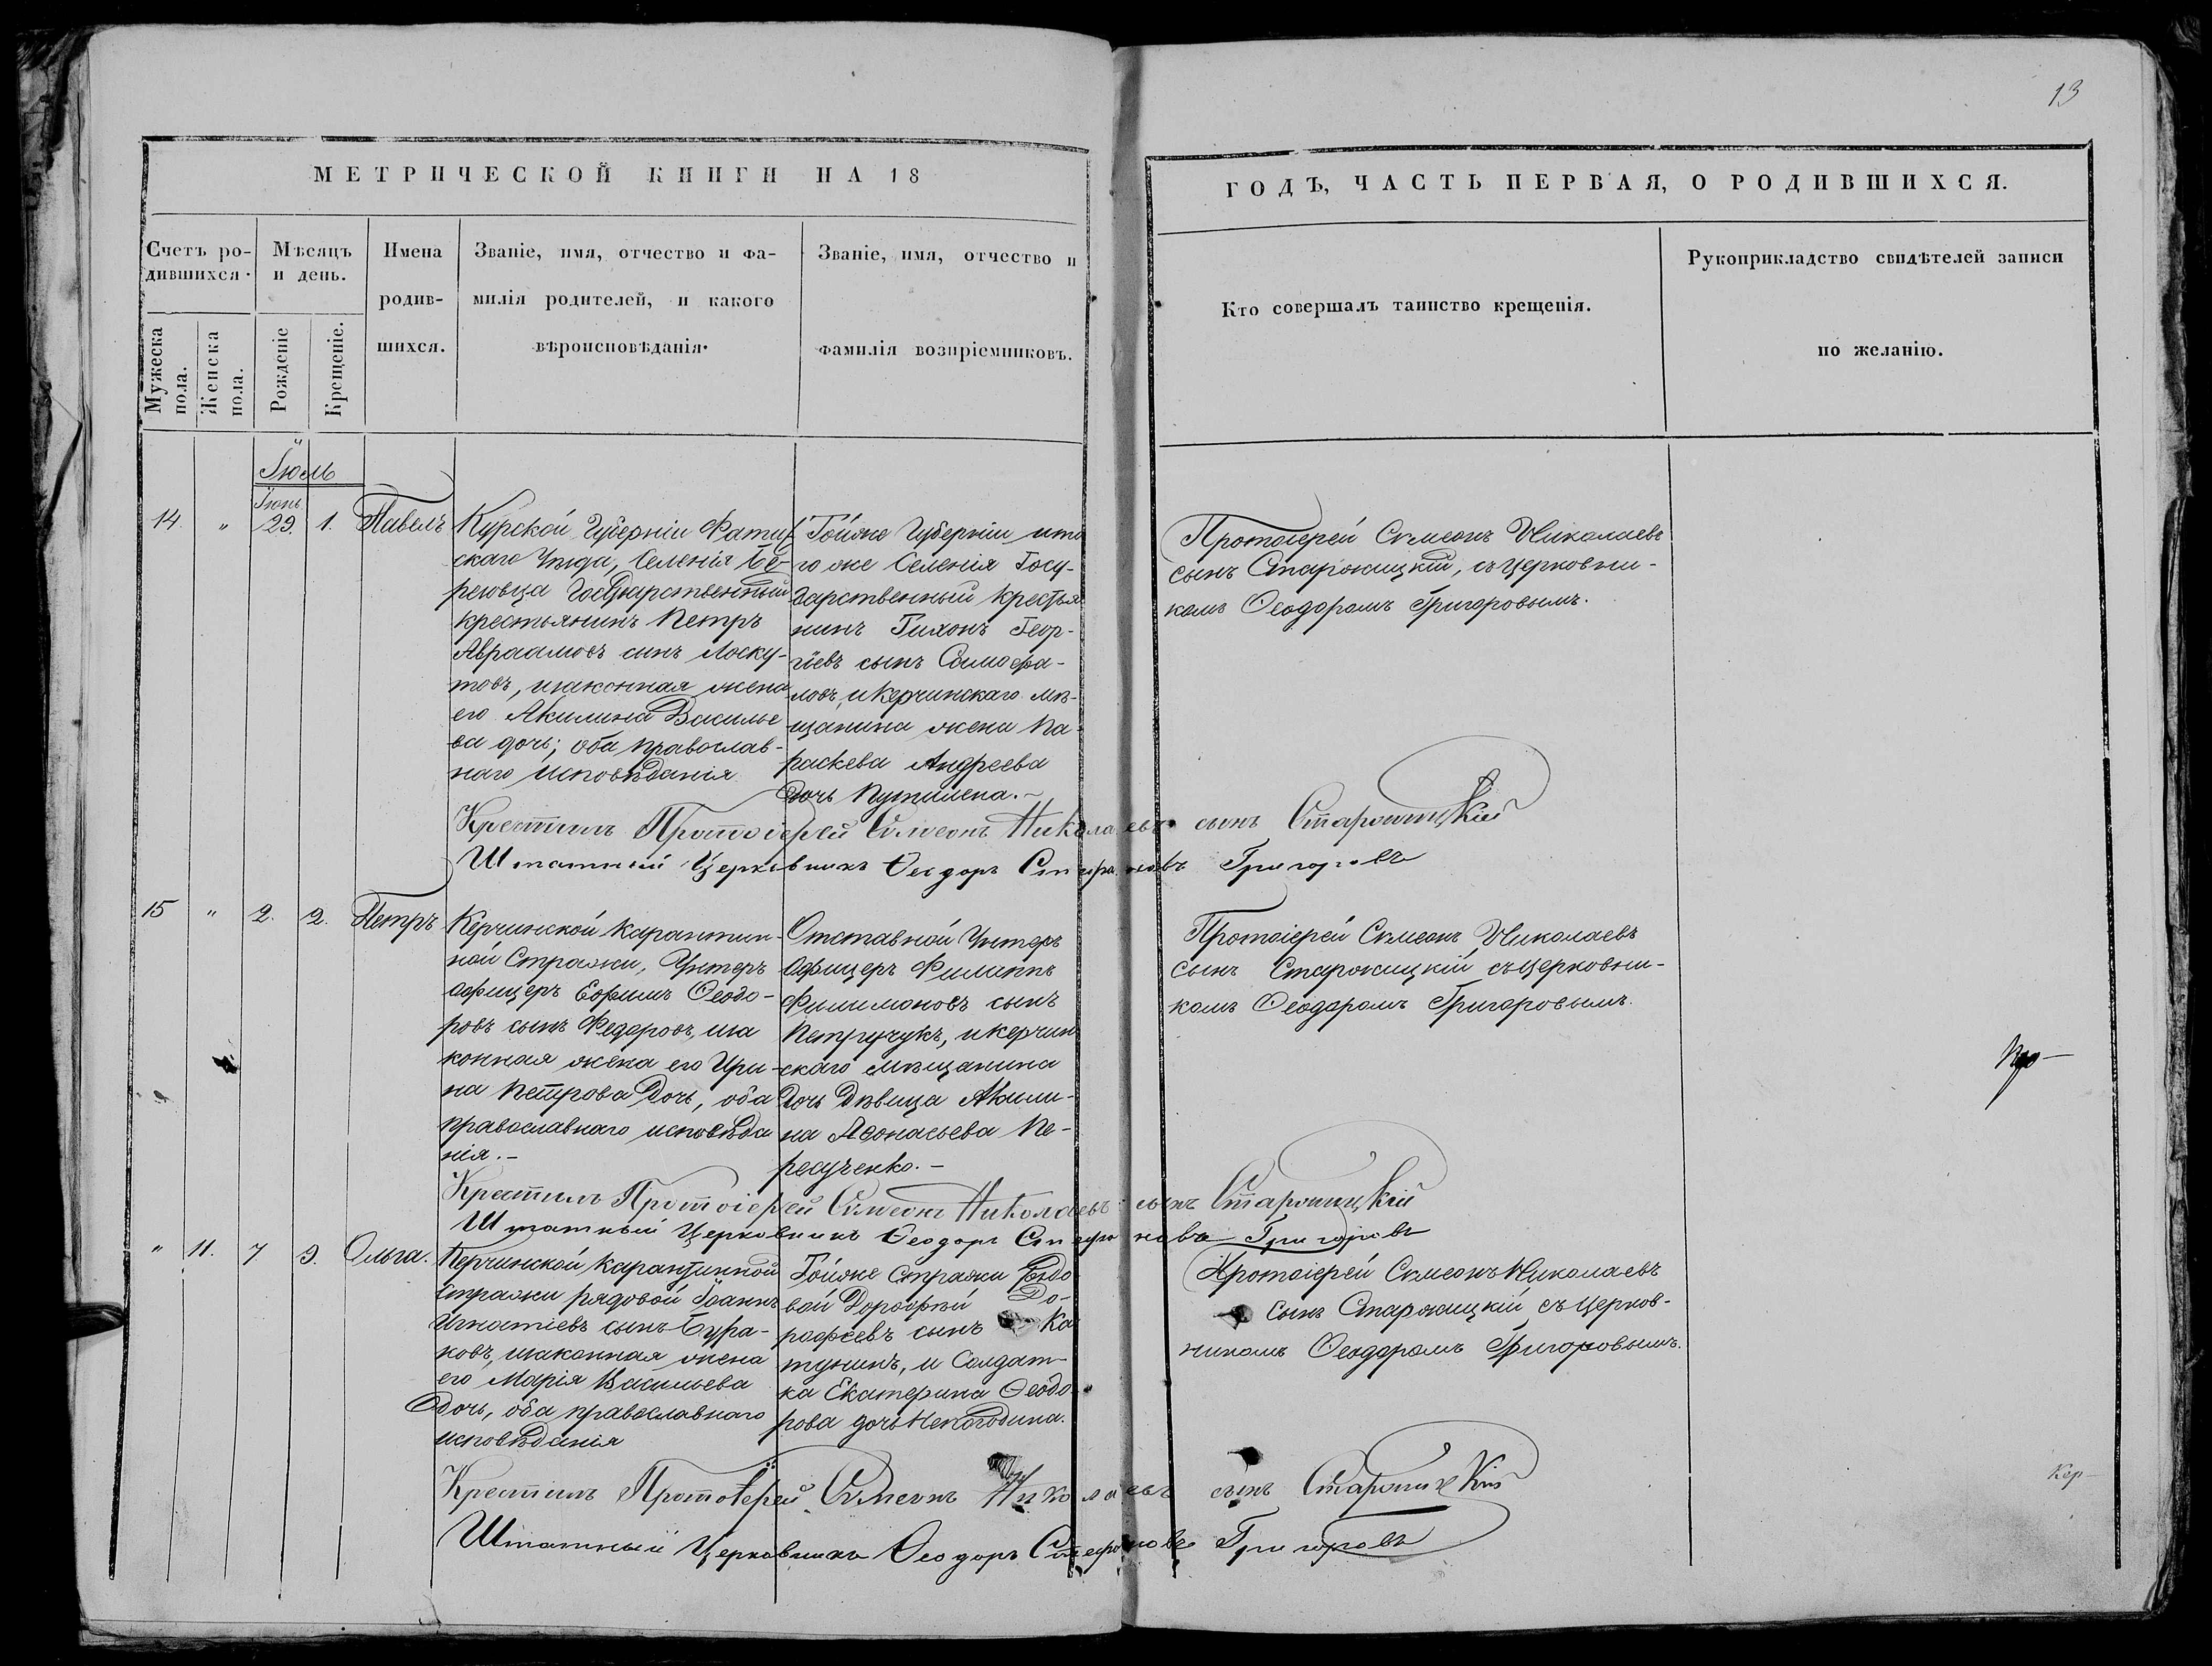 13
МЕТРИЧЕСКОЙ КНИГИ НА 18
ГОДЪ, ЧАСТЬ ПЕРВАЯ, О РОДИВШИХСЯ.
Счетъ ро-
дившихся.
Мужеска
пола.
Женска
пола.
Мѣсяцъ
и день.
Рожденіе
Крещеніе.
Имена
родив-
шихся.
Званіе, имя, отчество и фа-
милія родителей, и какого
вѣроисповѣданія.
Званіе, имя, отчество и
фамилія воспріемниковъ.
Кто совершалъ таинство крещенія.
Рукоприкладство свидѣтелей записи
по желанію.
Іюль
14
"
Іюнь
29.
1.
Павелъ
Курской Губерніи Фатиж
скаго Уѣзда, Селенія Бе-
реговца Государственный
крестьянинъ Петръ
Авраамовъ сынъ Лоску-
товъ, изаконная жена
его Акилина Василье
ва дочь; оба православ-
наго исповѣданія
Тойже Губерніи ито
гоже Селенія Госу-
дарственный крестья
нинъ Тихонъ Геор-
гіевъ сынъ
ловъ, икерчинскаго мѣ-
щанина жена Па-
раскева Андреева
дочь
Протоіерей Сѵмеонъ Николаевъ
сынъ Старожицкій, съцерковни-
комъ Ѳеодоромъ Григоровымъ.
Крестилъ Протоіерей Сѵмеонъ Николаевъ сынъ
Штатный Церковникъ Ѳеодоръ Стефановъ Григоровъ
15
"
2.
2.
Петръ
Керчинской карантин-
ной Стражи, Унтеръ
офицеръ Ефимъ Ѳеодо-
ровъ сынъ Федоровъ, иза
конная жена его Ири-
на Петрова дочь, оба
православнаго исповѣда
нія.-
Отставной Унтеръ
офицеръ Филиппъ
Филимоновъ сынъ
Петручукъ, икерчин
скаго мѣщанина
дочь дѣвица Акили-
на Аѳонасьева Пе-
ресученко.-
Протоіерей Сѵмеонъ Николаевъ
сынъ Старожицкій съцерковни-
комъ Ѳеодоромъ Григоровымъ.
Крестилъ Протоіерей Сѵмеонъ Николаевъ сынъ
Штатный Церковникъ Ѳеодоръ Стефановъ Григоровъ
"
11.
7
9.
Ольга.
Керчинской карантинной
стражи рядовой Іоаннъ
Игнатіевъ сынъ Бура-
ковъ, изаконная жена
его Марія Васильева
дочь, оба православнаго
исповѣданія
Тойже Стражи Рядо
вой Дорофей До-
рофеевъ сынъ Ка
тунинъ, и Солдат-
ка Екатерина Ѳеодо-
рова дочь Непогодина.
Протоіерей Сѵмеонъ Николаевъ
сынъ Старожицкій, съ церков-
никомъ Ѳеодоромъ Григоровымъ.
Крестилъ Протоіерей Сѵмеонъ Николаевъ сынъ
Штатный Церковникъ Ѳеодоръ Стефановъ Григоровъ
Кер-